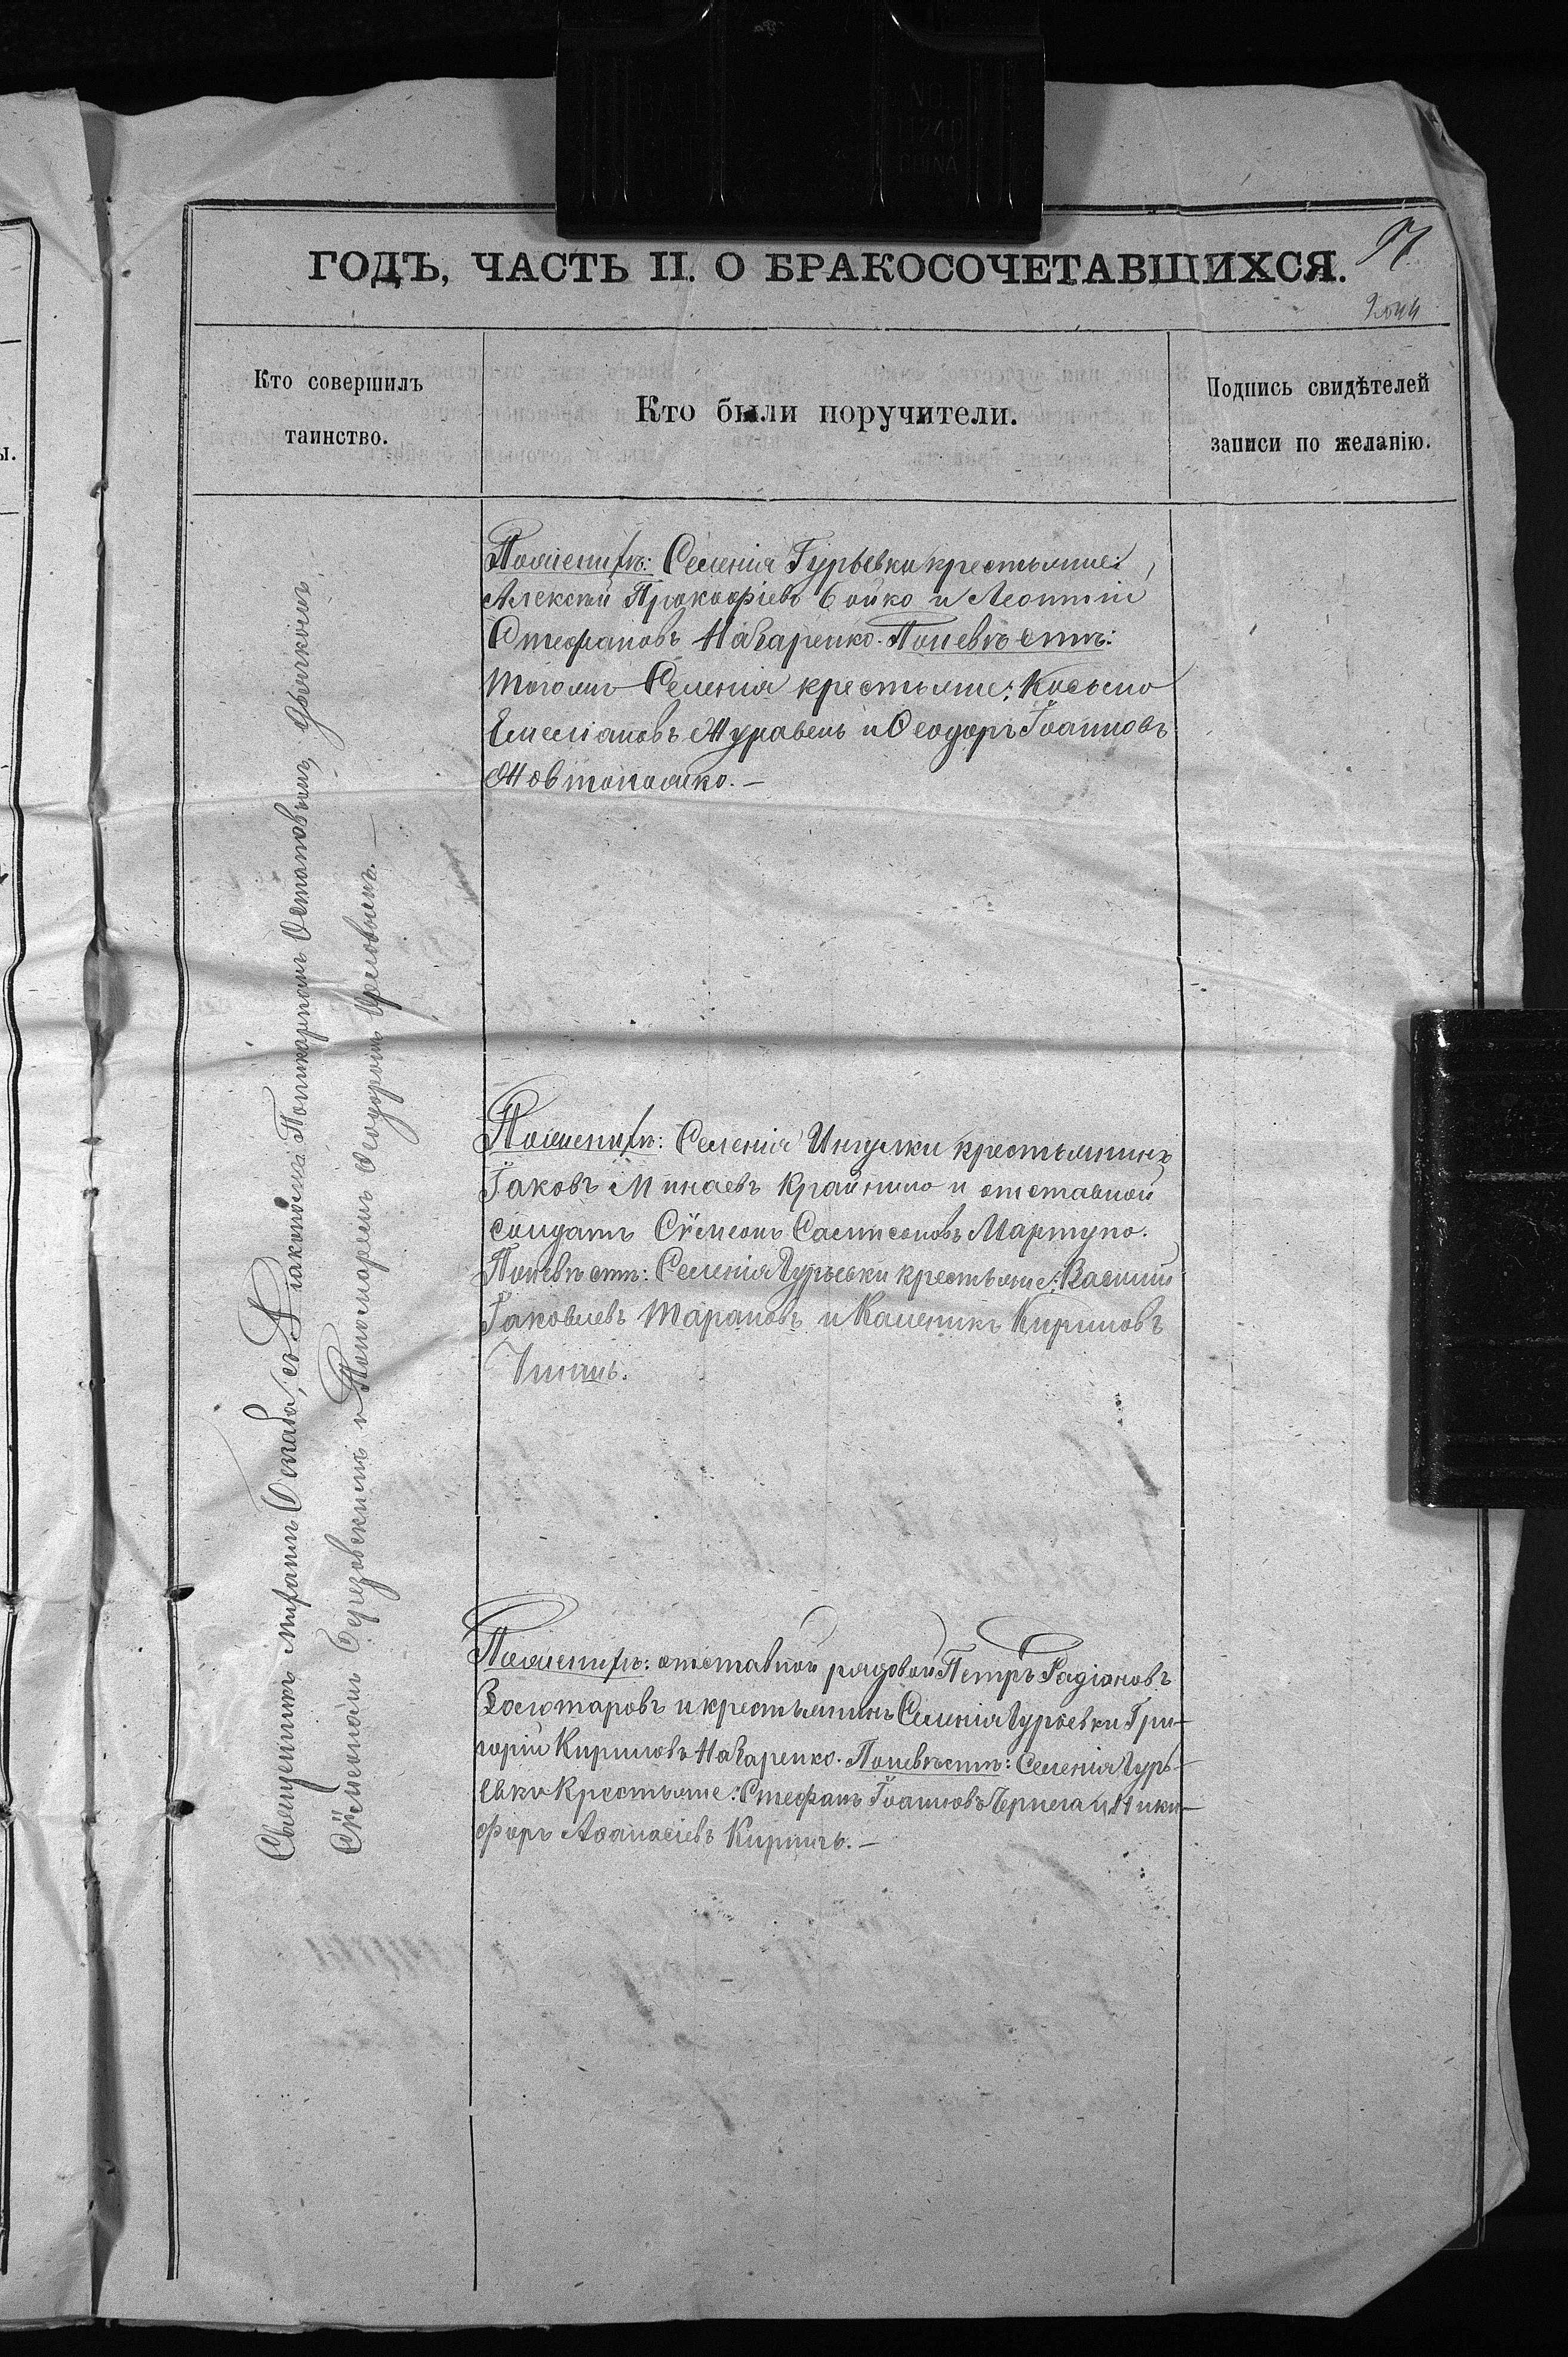 ГОДЪ, ЧАСТЬ II. О БРАКОСОЧЕТАВШИХСЯ.
Кто совершилъ
таинство.
Кто были поручители.
Подпись свидѣтелей
записи по желанію.
Священникъ Діакономъ Поликарпомъ Остаповымъ,
Сѵмеономъ Березовскимъ и Пономаремъ Ѳеодоромъ Орловымъ. —
По женихѣ: Селенія Гурьевки крестьяне:
Алексѣй Прокофіевъ Бойко и Леонтій
Стефановъ Назаренко. По невѣстѣ:
того же Селенія крестьяне: Косьма
Емеліановъ Журавель и Ѳеодоръ Іоанновъ
По женихѣ: Селенія Ингулки крестьянинъ
Іаковъ Минаевъ и отставной
солдатъ Сѵмеонъ Сампсоновъ
По невѣстѣ: Селенія Гурьевки крестьяне: Василій
Іаковлевъ Тарановъ и Каленикъ Кириловъ
По женихѣ: отставной рядовой Петръ Радіоновъ
Золотаровъ и крестьянинъ Селенія Гурьевки Гри-
горій Кириловъ Назаренко. По невѣстѣ: Селенія Гурь-
евки Крестьяне: Стефанъ Іоанновъ Чернега и Ники-
форъ Аѳанасіевъ Киричъ. —
ы.